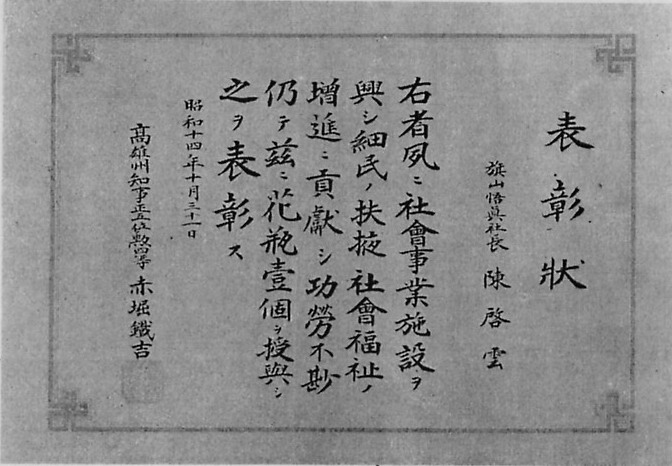 表彰狀
旗山悟眞社長 陳啓雲
右者夙ニ社會事業施設ヲ
興シ細民ノ扶掖社會福祉ノ
增進ニ貢獻シ功勞不尠
仍テ茲ニ花瓶壹個ヲ授與シ
之ヲ表彰ス
昭和十四年十月三十一日
高雄州知事正五位勲四等 赤堀鐵吉